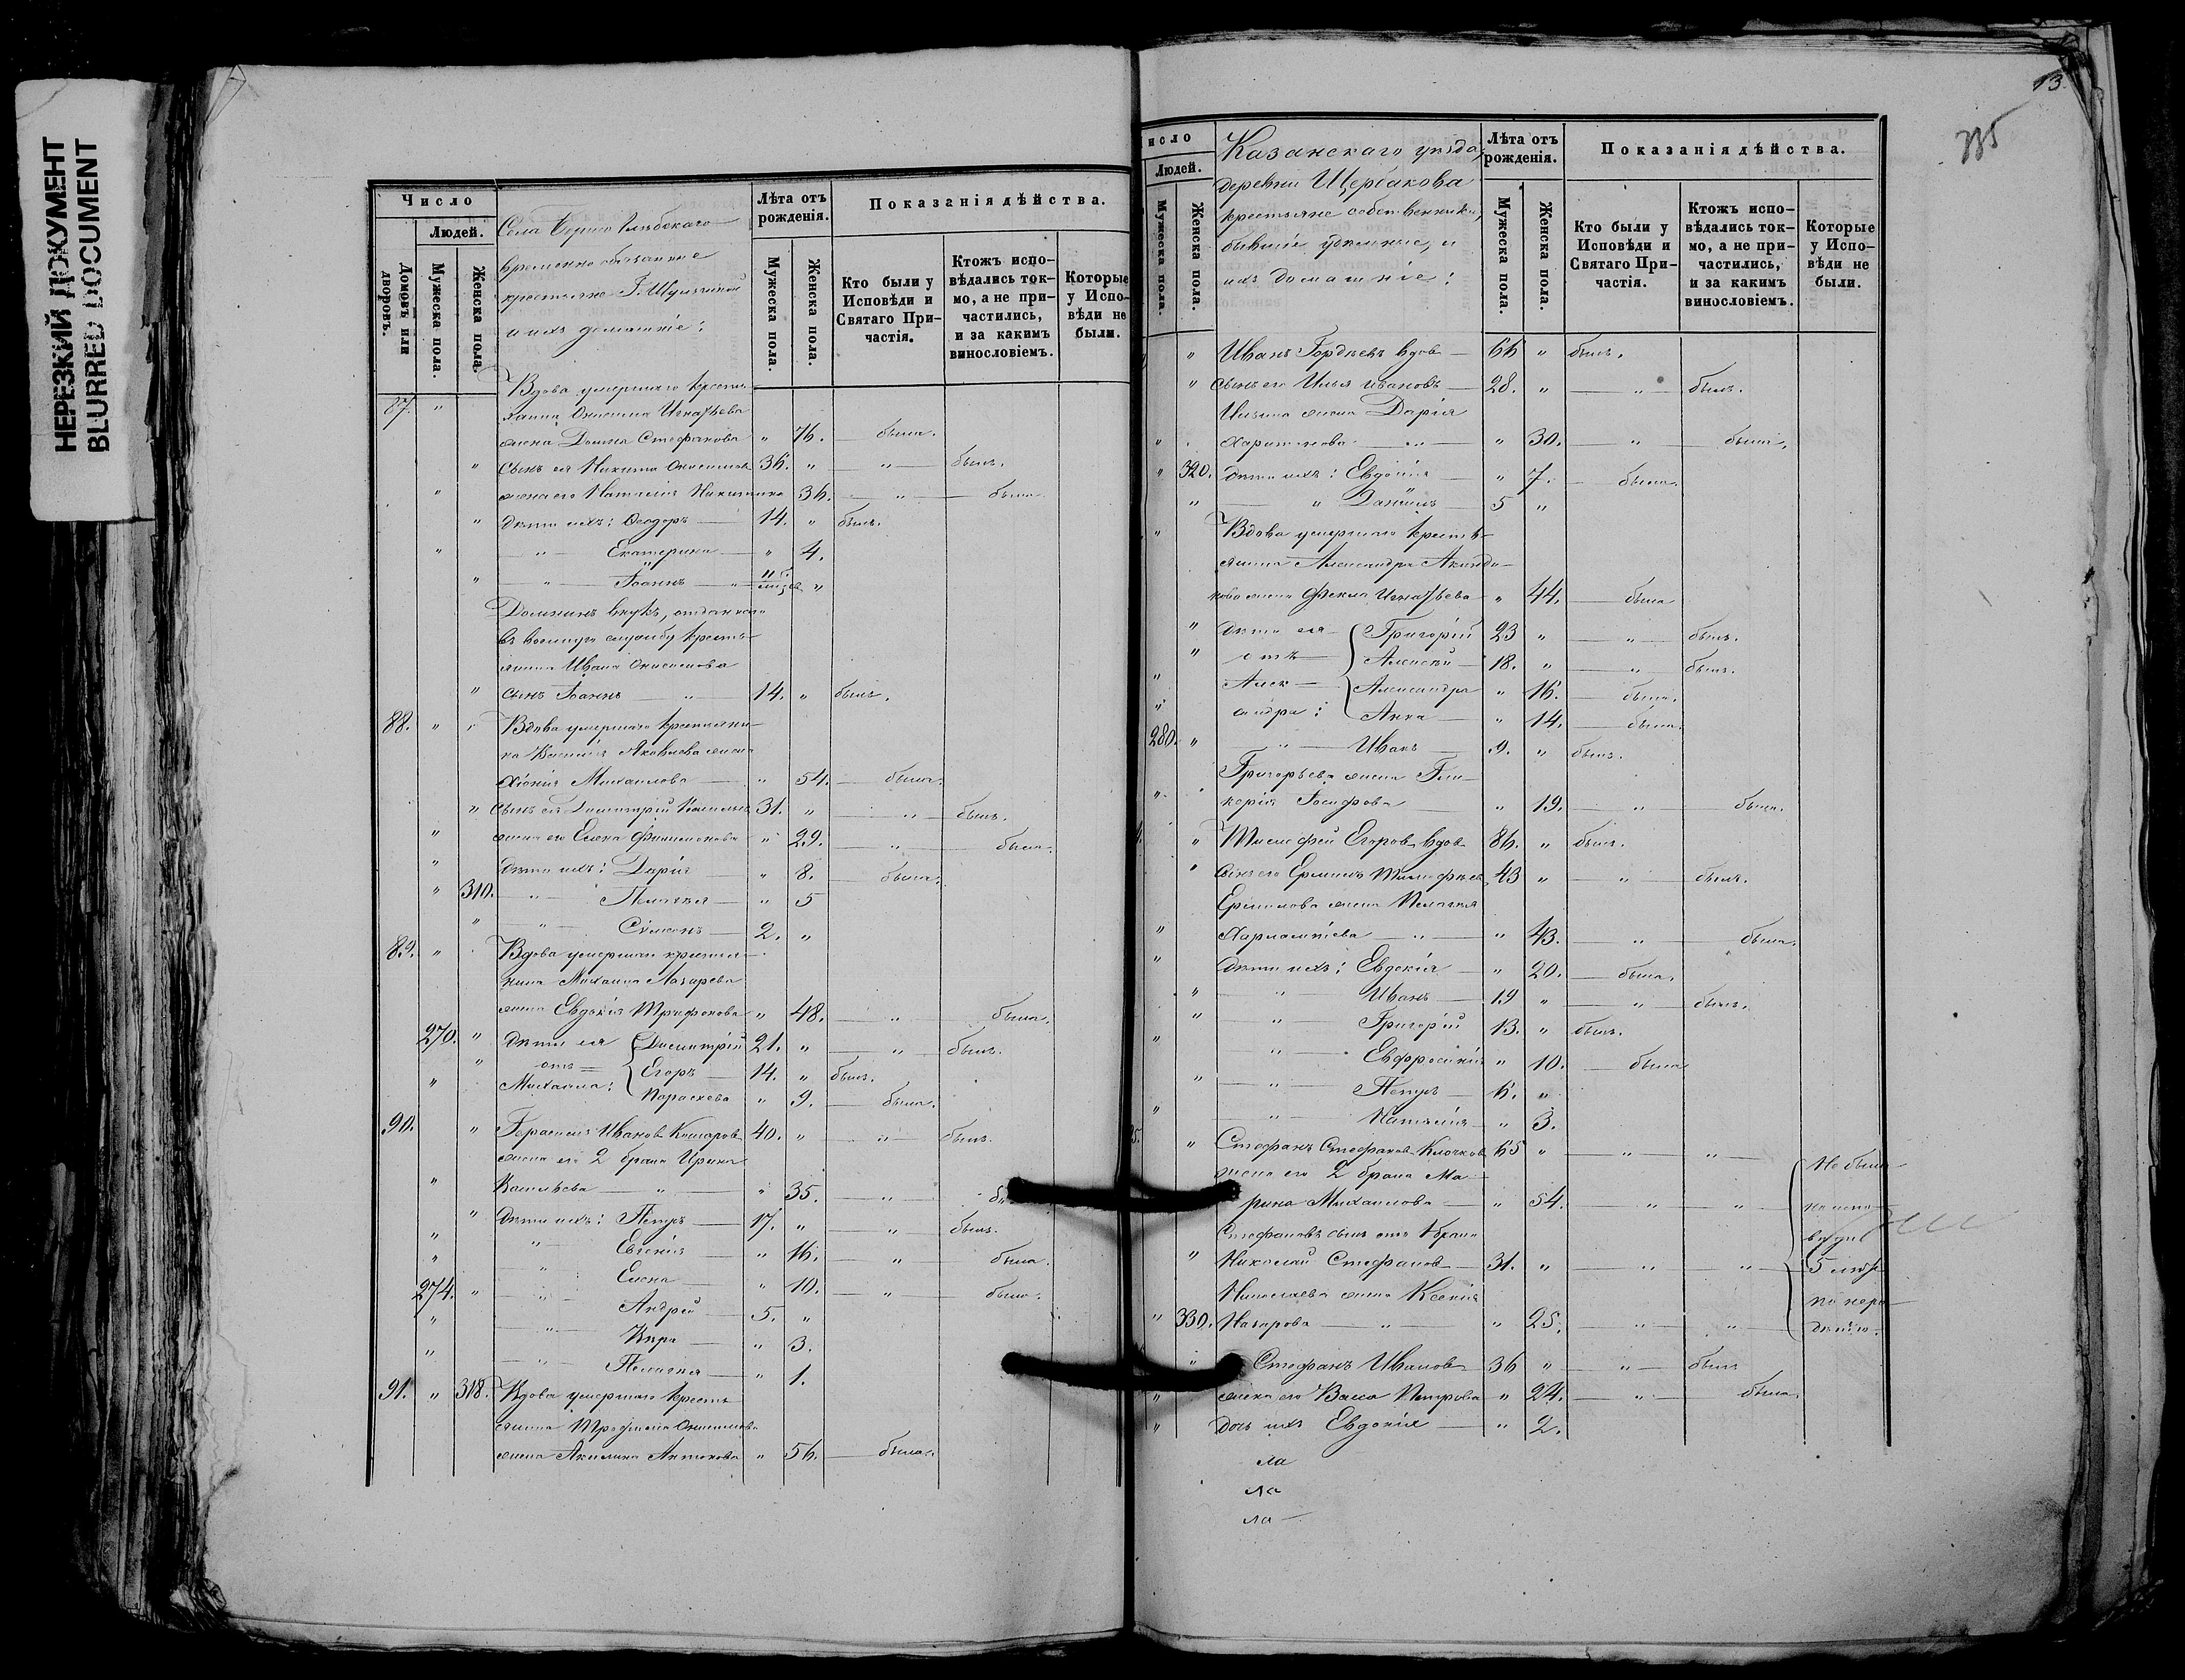 НЕРЕЗКИЙ ДОКУМЕНТ
BLURRED DOCUMENT
Число
Людей.
Домовъ или дворовъ.
Мужеска пола.
Женска пола.
Села Борисо Глѣбскаго
временно обязанные
крестьяне Г.
и ихъ домашніе:
Лѣта отъ рожденія.
Мужеска пола.
Женска пола.
Показанія дѣйства.
Кто были у Исповѣди и Святаго Причастія.
Ктожъ исповѣдались токмо, а не причастились, и за какимъ винословіемъ.
Которые у Исповѣди не были.
Вдова умершаго крестья-
87. " Онисима Игнатьева
жена Домна Стефанова " 76. — была.
" Сынъ ея Никита Онисимовъ 36. " — " — былъ.
" жена его Наталія Никитина 36. — " — была.
" Дѣти ихъ: Ѳеодоръ — 14. " былъ.
" — " — Екатерина — " 4.
" — " — Іоаннъ — "
Домнинъ внукъ, отданнаго
въ военную службу кресть-
янина Ивана Онисимова
" сынъ Іоаннъ — " — 14. " былъ.
88. " Вдова умершаго крестьяни-
на Василія Яковлева жена
Хіонія Михаилова — " 54. — была.
" Сынъ ея Димитрій Васильевъ 31. " — " — былъ.
" жена его Елена Филимонова " 29. — " — была.
" Дѣти ихъ: Дарія — " 8. — была.
" 310. — " — Пелагея — " 5
" — " — Сѵмеонъ — 2. "
89. " Вдова умершаго крестья-
нина Михаила Лазарева
жена Евдокія Трифонова " 48. — " — была.
270. " Дѣти ея Димитрій 21. " — " — былъ.
" отъ Егоръ — 14. " былъ.
" Михаила: Параскева " 9. — была.
90. " Герасимъ Иванов Комаров 40. " — " — былъ.
жена его 2 брака Ирина
" Васильева — " — " 35. — " —
" Дѣти ихъ: Петръ — 17. " — " — былъ.
" — " — Евгенія — " 16. — " — была.
" — " — Елена — " 10. — " — была.
274. " — " — Андрей — 5. "
" — " — Кира — " 3.
" — " — Пелагея — " 1.
91. " 318. Вдова умершаго кресть-
янина Трофима Онисимова
жена Акилина Антонова " 56. — была.
13.
335
Число
Людей.
Мужеска пола.
Женска пола.
Казанскаго уѣзда,
деревни Щербакова
крестьяне собственники,
бывшіе удѣльные, и
ихъ домашніе:
Лѣта отъ рожденія.
Мужеска пола.
Женска пола.
Показанія дѣйства.
Кто были у Исповѣди и Святаго Причастія.
Ктожъ исповѣдались токмо, а не причастились, и за какимъ винословіемъ.
Которые у Исповѣди не были.
" Иванъ Гордѣевъ вдов — 66 " былъ.
" Сынъ его Илья Ивановъ — 28. " — " — былъ.
Ильина жена Дарія
" Харитонова — " — " 30. — " — была.
" 320. Дѣти ихъ: Евдокія — " 7. — была.
" — " Даніилъ — 5 "
" Вдова умершаго кресть-
янина Александра Акиндо-
нова жена Фекла Игнатьева " 44. — была
" Дѣти ея Григорій 23 " — " — былъ.
" отъ Алексѣй — 18. " — " — былъ.
" Алек- Александра " 16. — была.
" сандра: Анна — " 14. — была.
280. " — " — Иванъ — 9. " былъ.
Григорьева жена Гли-
" керія Іосифова — " 19. — " — была.
" Тимофей Егоров вдов 86. " былъ.
" Сынъ его Ермилъ Тимофѣев 43 " — " — былъ.
Ермилова жена Пелагея
" Харлампіева — " — " 43. — " — была.
" Дѣти ихъ: Евдокія — " 20. — была.
" — " — Иванъ — 19 " — " — былъ.
" — " — Григорій 13. " былъ.
" — " — Евфросинія " 10. — была.
" — " — Петръ — 6. "
" — " — Наталія — " 3.
" Стефанъ Стефанов Клочков 65 " — " — " —
жена его 2 брака Ма-
рина Михаилова — " 54. — " — "
Стефановъ сынъ отъ 1 брака
" Николай Стефанов — 31. " — " — "
Николаева жена Ксенія
" 330. Назарова — " — " 25. — " — "
Не были
на испо-
вѣди
5 лѣтъ
по нера-
дѣнію.
" Стефанъ Иванов 36 " — " — былъ
" жена его Васса Петрова " 24. — " — была.
" Дочь ихъ Евдокія — " 2.
ла
ла
ла